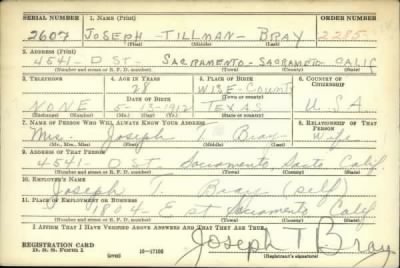 SERIAL NUMBER 1. NAME (Print) ORDER NUMBER
2607 JOSEPH - TILLMAN - BRAY 2285
(First) (Middle) (Last)
2. ADDRESS (Print)
4541 - D ST - SACRAMENTO - SACRAMETO CALIF
(Number and street or R. F. D. number) (Town) (County) (State)
3. TELEPHONE 4. AGE IN YEARS 5. PLACE OF BIRTH 6. COUNTRY OF CITIZENSHIP
28 WISE - COUNTY
DATE OF BIRTH (Town or county)
NONE 5 - 13 - 1912 TEXAS U.S.A
(Mo.) (Day) (Yr.) (State or country)
7. NAME OF PERSON WHO WILL ALWAYS KNOW YOUR ADDRESS 8. RELATIONSHIP OF THAT PERSON
Mrs. Joseph T Bray wife
(Mr., Mrs., Miss) (First) (Middle) (Last)
9. ADDRESS OF THAT PERSON
4541 - D ST Sacramento, Sacto Calif.
(Number and street or R. F. D. number) (Town) (County) (State)
10. EMPLOYER'S NAME
Joseph T. Bray (self)
11. PLACE OF EMPLOYMENT OR BUSINESS
1804 E st Sacramento Calif
(Number and street or R. F. D. number) (Town) (County) (State)
I AFFIRM THAT I HAVE VERIFIED ABOVE ANSWERS AND THAT THEY ARE TRUE.
REGISTRATION CARD
D. S. S. Form 1 (over) 16—17105 Joseph T Bray
(Registrant's signature)